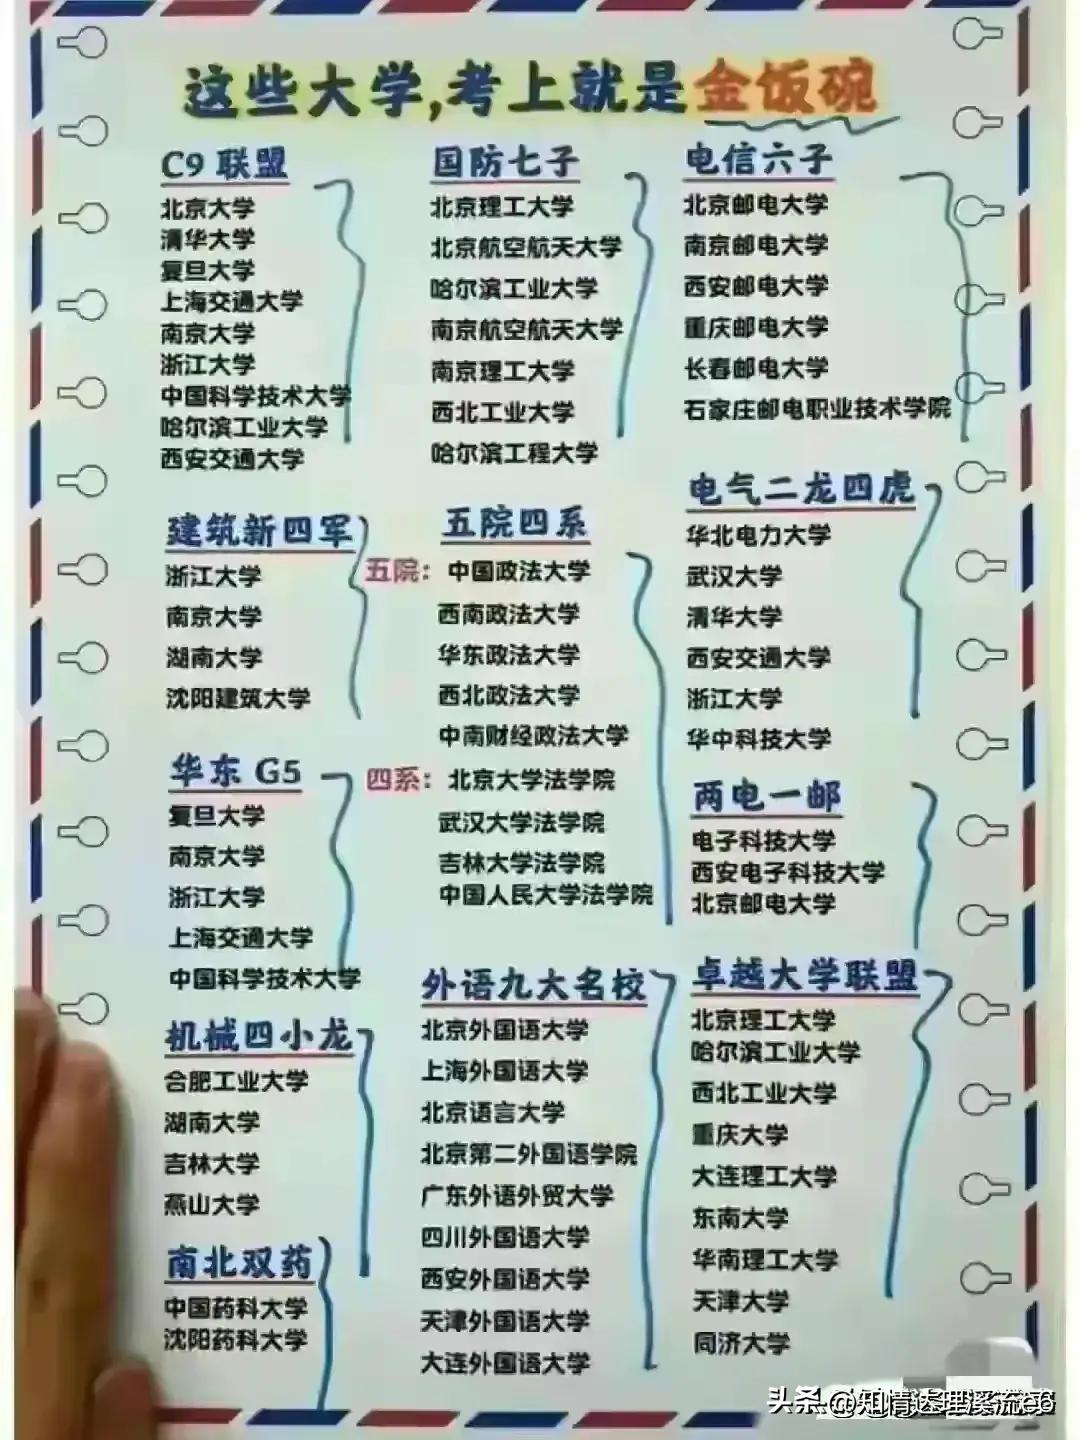 这些大学,考上就是金饭碗
C9 联盟
北京大学
清华大学
复旦大学
上海交通大学
南京大学
浙江大学
中国科学技术大学
哈尔滨工业大学
西安交通大学
国防七子
北京理工大学
北京航空航天大学
哈尔滨工业大学
南京航空航天大学
南京理工大学
西北工业大学
哈尔滨工程大学
电信六子
北京邮电大学
南京邮电大学
西安邮电大学
重庆邮电大学
长春邮电大学
石家庄邮电职业技术学院
建筑新四军
浙江大学
南京大学
湖南大学
沈阳建筑大学
五院四系
五院: 中国政法大学
西南政法大学
华东政法大学
西北政法大学
中南财经政法大学
四系: 北京大学法学院
武汉大学法学院
吉林大学法学院
中国人民大学法学院
电气二龙四虎
华北电力大学
武汉大学
清华大学
西安交通大学
浙江大学
华中科技大学
华东 G5
复旦大学
南京大学
浙江大学
上海交通大学
中国科学技术大学
两电一邮
电子科技大学
西安电子科技大学
北京邮电大学
机械四小龙
合肥工业大学
湖南大学
吉林大学
燕山大学
外语九大名校
北京外国语大学
上海外国语大学
北京语言大学
北京第二外国语学院
广东外语外贸大学
四川外国语大学
西安外国语大学
天津外国语大学
大连外国语大学
卓越大学联盟
北京理工大学
哈尔滨工业大学
西北工业大学
重庆大学
大连理工大学
东南大学
华南理工大学
天津大学
同济大学
南北双药
中国药科大学
沈阳药科大学
头条 @知情达理溪流e6